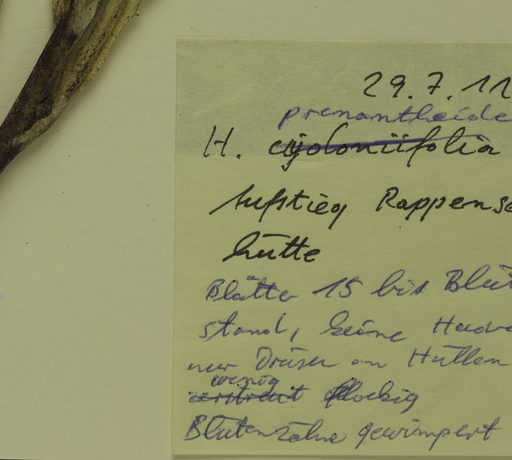 29.7.11
prenantheide
H. cydoniifolia
Aufstieg Rappense
hütte
Blätter 15 bis Blüt
stand, keine Haare
nur Drüsen an Hüllen
wenig
zerstreut flockig
Blütenzähne gewimpert